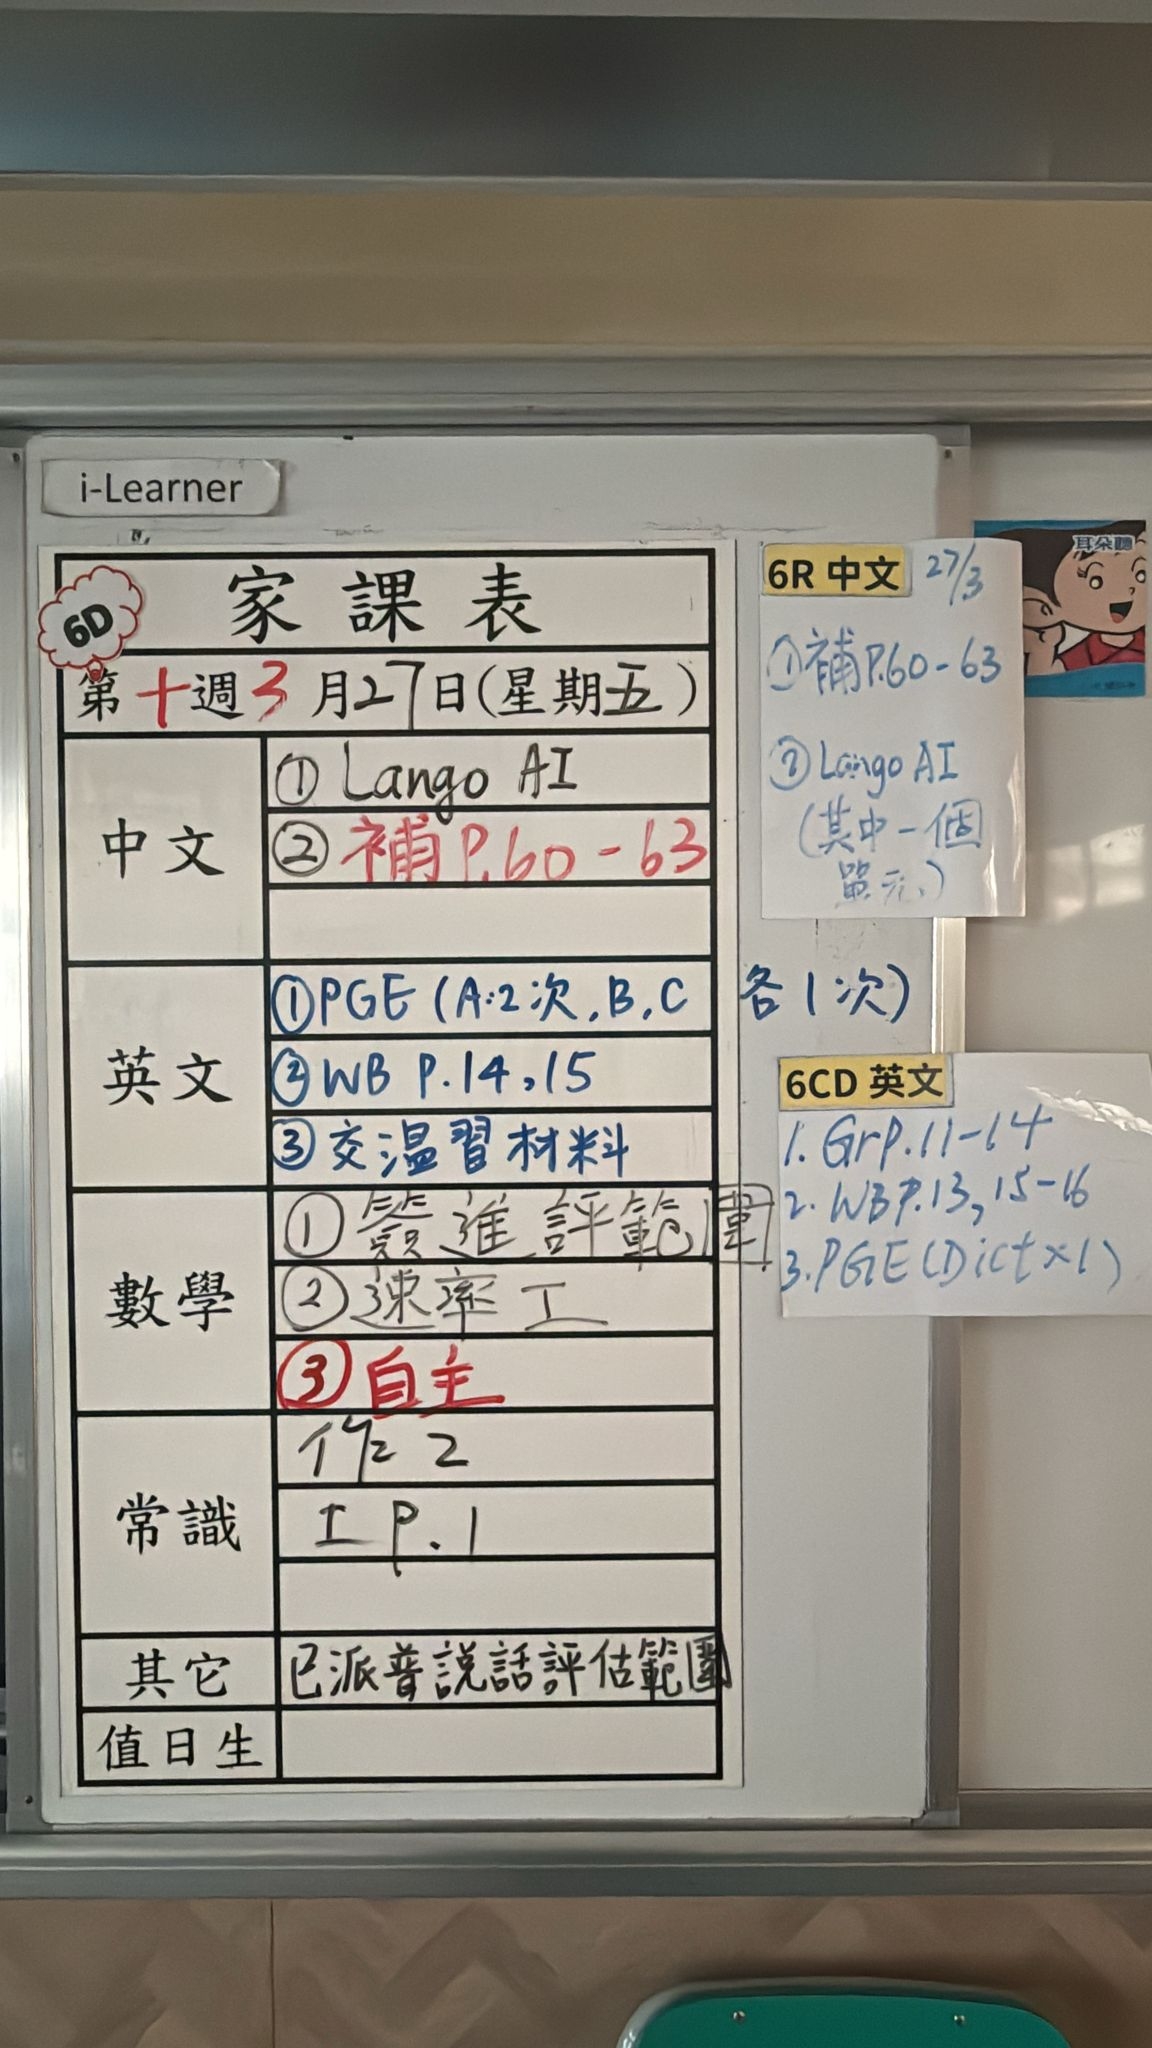 i-Learner
6D
家課表
第十週3月27日(星期五)
中文
① Lango AI
② 補P.60-63
英文
①PGE (A:2次,B,C 各1次)
②WB P.14,15
③交溫習材料
數學
①簽進評範圍
②速率工
③自主
常識
作2
工P.1
其它
已派普說話評估範圍
值日生
6R 中文 27/3
①補P.60-63
②Lango AI
(其中一個
單元)
6CD 英文
1. GrP.11-14
2. WBP.13,15-16
3.PGE(Dict×1)
耳朵聽